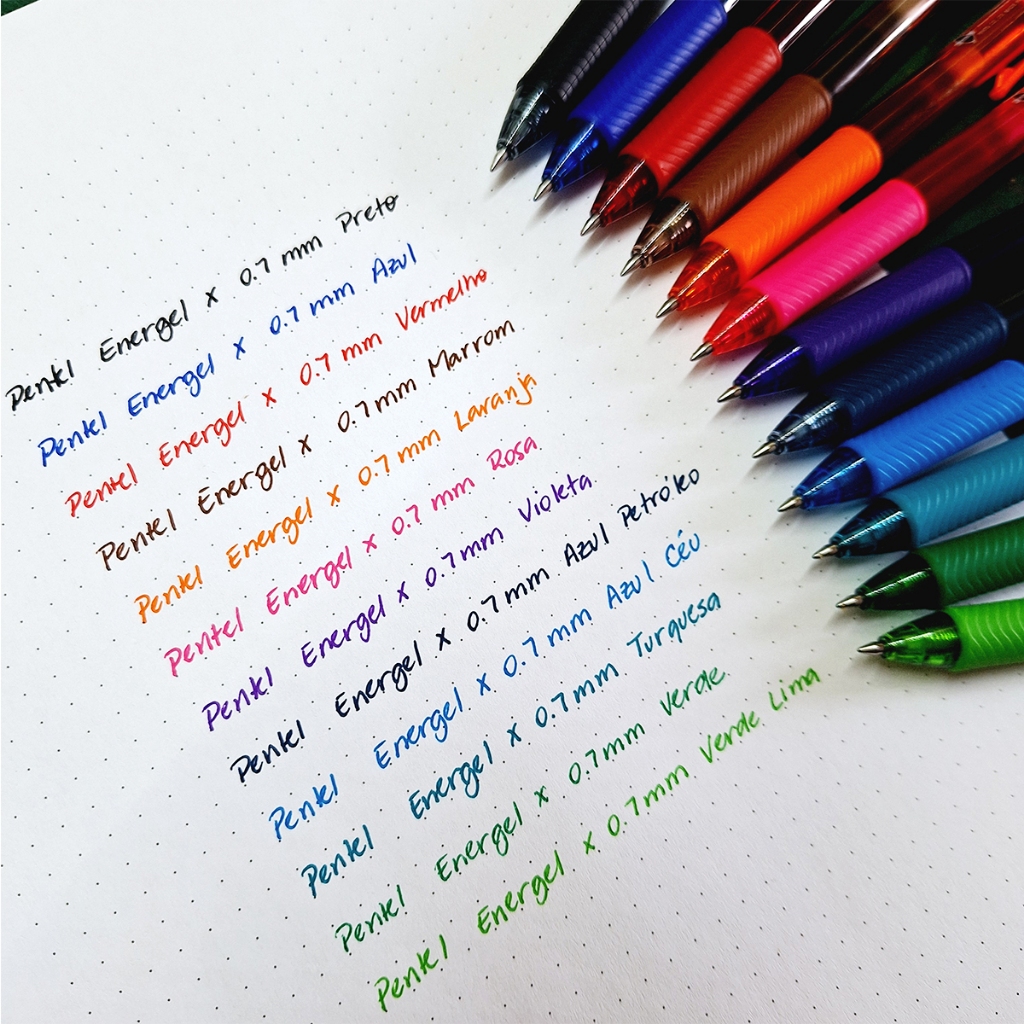 Pentel Energel x 0.7 mm Preto
Pentel Energel x 0.7 mm Azul
Pentel Energel x 0.7 mm Vermelho
Pentel Energel x 0.7 mm Marrom
Pentel Energel x 0.7 mm Laranja
Pentel Energel x 0.7 mm Rosa
Pentel Energel x 0.7 mm Violeta
Pentel Energel x 0.7 mm Azul Petróleo
Pentel Energel x 0.7 mm Azul Céu
Pentel Energel x 0.7 mm Turquesa
Pentel Energel x 0.7 mm Verde
Pentel Energel x 0.7 mm Verde Lima